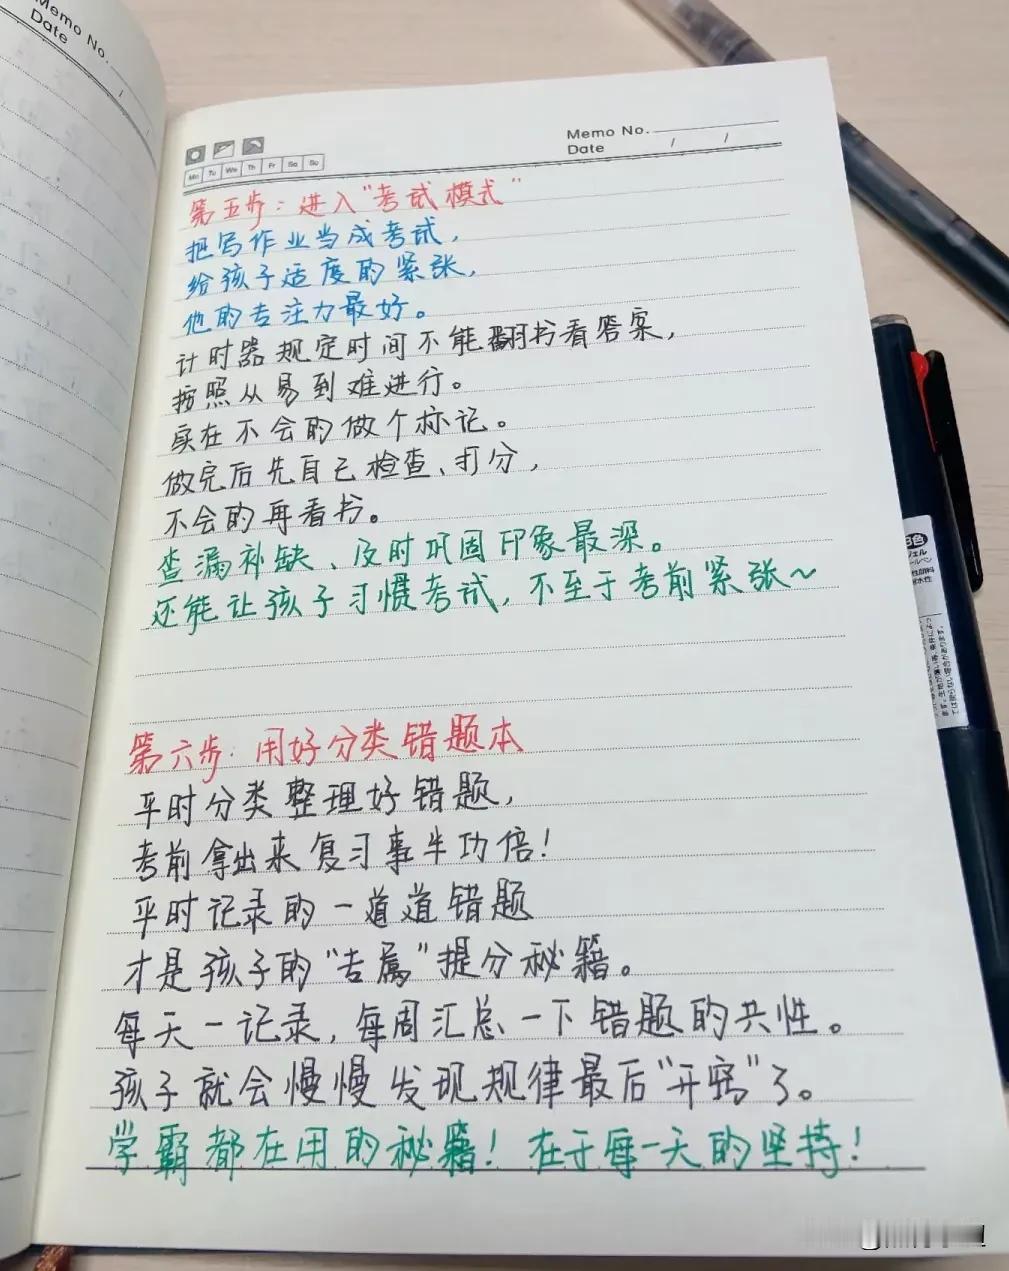 Memo No.
Date
Memo No.
Date / /
Mo Tu We Th Fr Sa Su
第五步：进入"考试模式"
把写作业当成考试，
给孩子适度的紧张，
他的专注力最好。
计时器规定时间不能翻书看答案，
按照从易到难进行。
实在不会的做个标记。
做完后先自己检查、打分，
不会的再看书。
查漏补缺、及时巩固印象最深。
还能让孩子习惯考试，不至于考前紧张～
第六步：用好分类错题本
平时分类整理好错题，
考前拿出来复习事半功倍！
平时记录的一道道错题
才是孩子的"专属"提分秘籍。
每天一记录，每周汇总一下错题的共性。
孩子就会慢慢发现规律最后"开窍"了。
学霸都在用的秘籍！在于每一天的坚持！